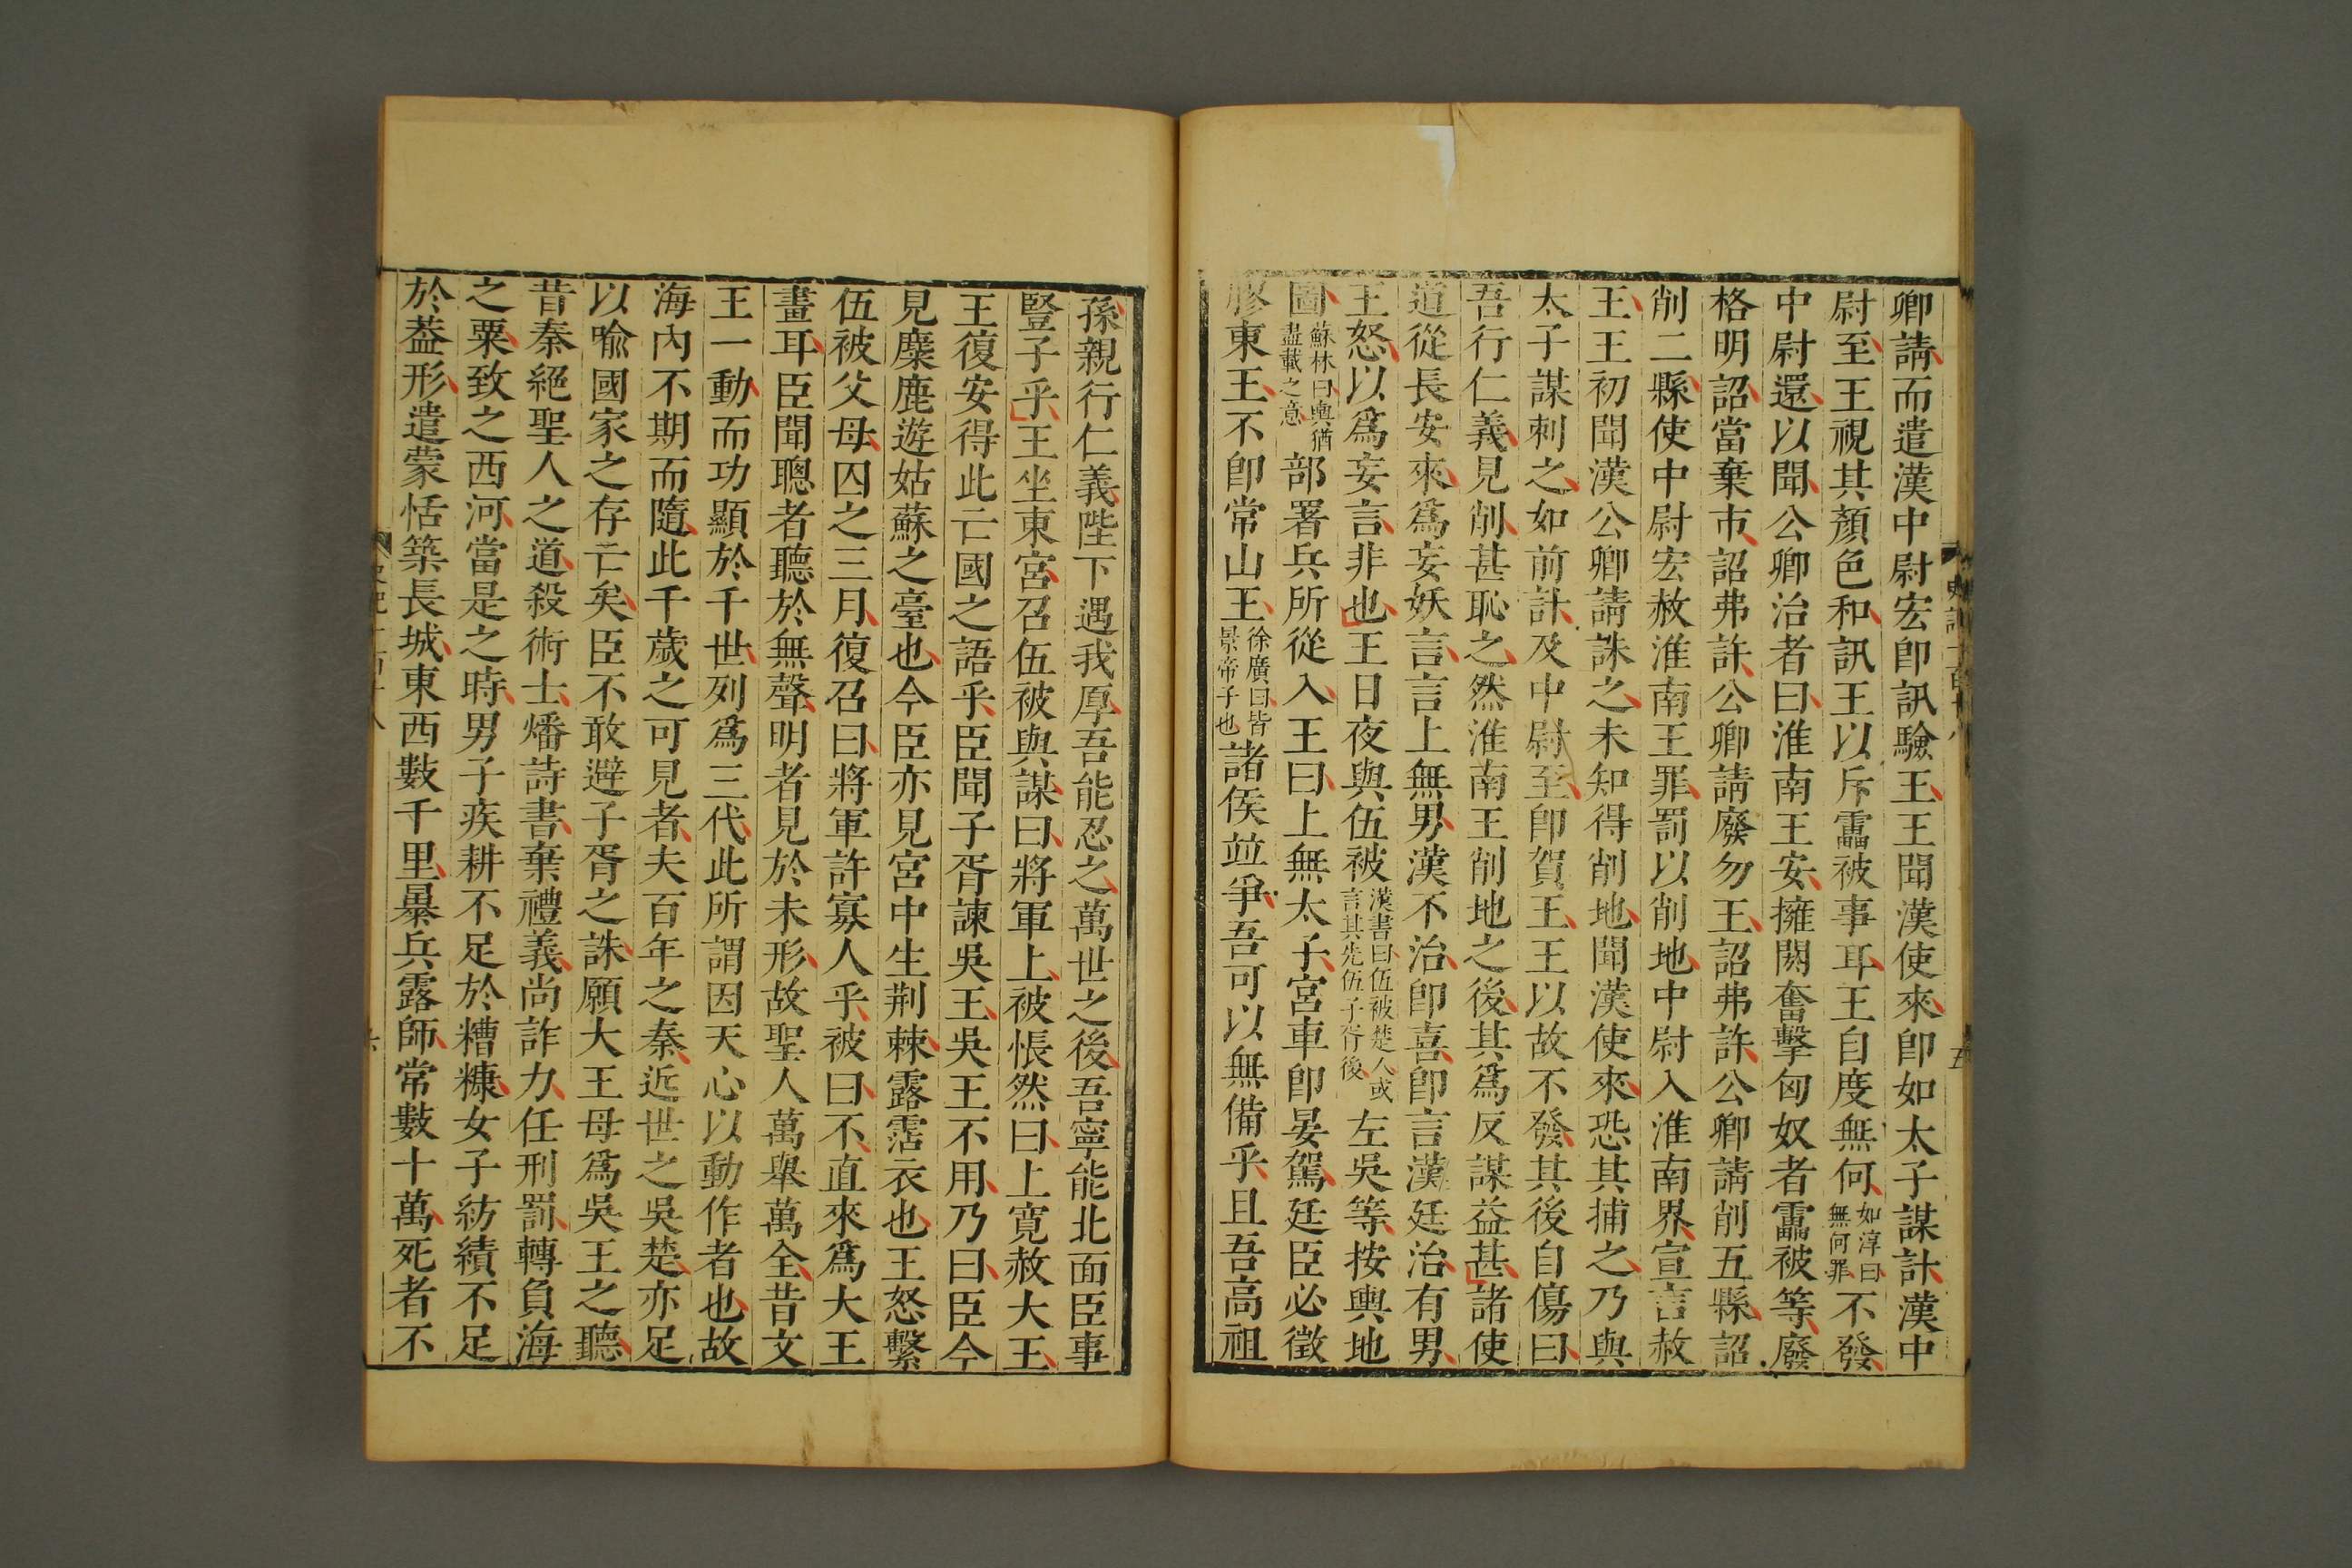 卿請而遣漢中尉宏卽訊驗王王聞漢使來卽如太子謀計漢中
尉至王視其顏色和訊王以斥靁被事耳王自度無何如淳曰無何罪不發
中尉還以聞公卿治者曰淮南王安擁閼奮擊匈奴者靁被等廢
格明詔當棄市詔弗許公卿請廢勿王詔弗許公卿請削五縣詔
削二縣使中尉宏赦淮南王罪罰以削地中尉入淮南界宣言赦
王王初聞漢公卿請誅之未知得削地聞漢使來恐其捕之乃與
太子謀刺之如前計及中尉至卽賀王王以故不發其後自傷曰
吾行仁義見削甚恥之然淮南王削地之後其爲反謀益甚諸使
道從長安來爲妄妖言言上無男漢不治卽喜卽言漢廷治有男
王怒以爲妄言非也王日夜與伍被漢書曰伍被楚人或言其先伍子胥後左吳等按輿地
圖蘇林曰輿猶盡載之意部署兵所從入王曰上無太子宮車卽晏駕廷臣必徵
膠東王不卽常山王徐廣曰皆景帝子也諸侯並爭吾可以無備乎且吾高祖
孫親行仁義陛下遇我厚吾能忍之萬世之後吾寧能北面臣事
豎子乎王坐東宮召伍被與謀曰將軍上被悵然曰上寬赦大王
王復安得此亡國之語乎臣聞子胥諫吳王吳王不用乃曰臣今
見麋鹿遊姑蘇之臺也今臣亦見宮中生荆棘露霑衣也王怒繫
伍被父母囚之三月復召曰將軍許寡人乎被曰不直來爲大王
畫耳臣聞聰者聽於無聲明者見於未形故聖人萬舉萬全昔文
王一動而功顯於千世列爲三代此所謂因天心以動作者也故
海內不期而隨此千歲之可見者夫百年之秦近世之吳楚亦足
以喻國家之存亡矣臣不敢避子胥之誅願大王毋爲吳王之聽
昔秦絕聖人之道殺術士燔詩書棄禮義尚詐力任刑罰轉負海
之粟致之西河當是之時男子疾耕不足於糟糠女子紡績不足
於葢形遣蒙恬築長城東西數千里暴兵露師常數十萬死者不